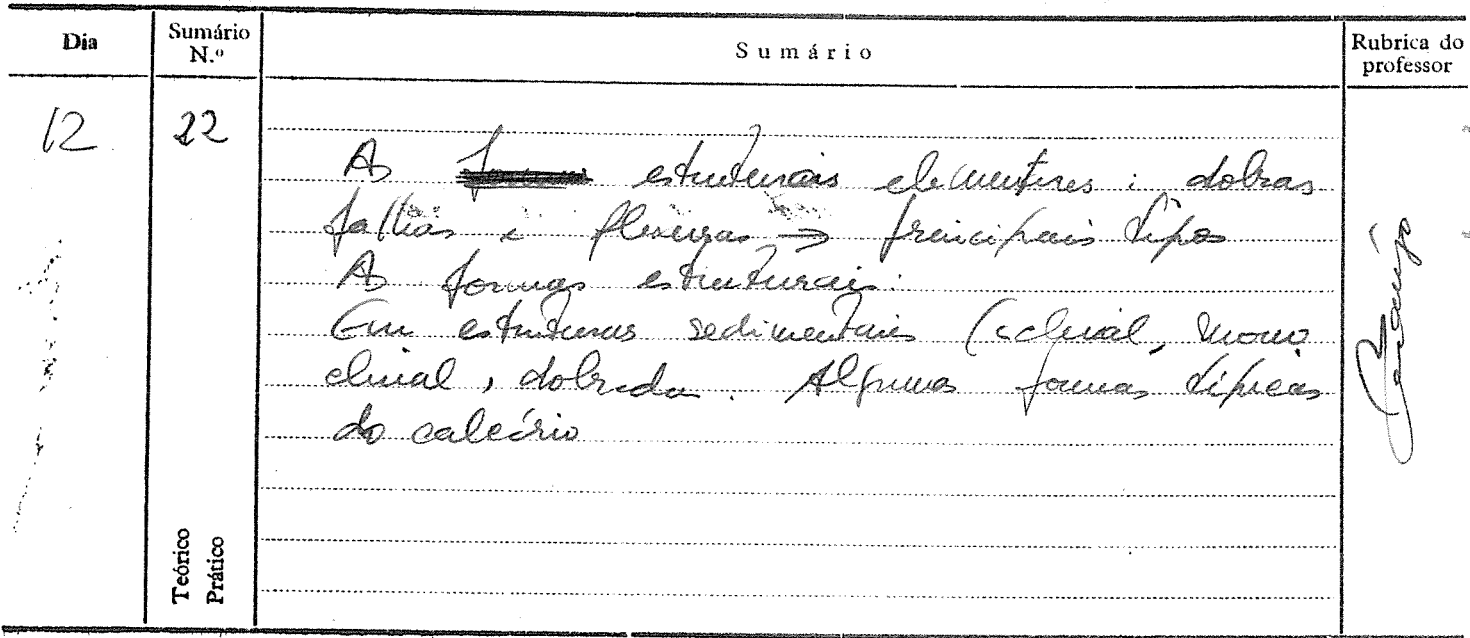 Dia
Sumário N.º
Sumário
Rubrica do professor
12
22
As estruturais elementares: dobras
falhas e flexuras → principais tipos
As formas estruturais:
Em estruturas sedimentares (aclinal, mono
clinal, dobrada. Algumas formas típicas
do calcário
Teórico
Prático